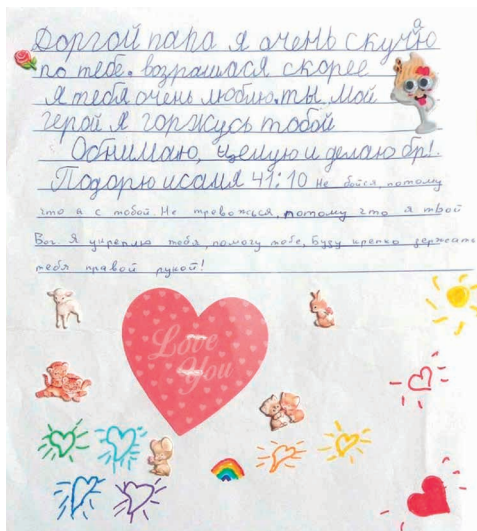 Доргой папа я очень скучаю
по тебе. возрашася скорее
я тебя очень люблю. ты мой
герой я горжусь тобой
Обнимаю, целую и делаю бр!.
Подорю исаия 41:10 Не бойся, потому
что я с тобой. Не тревожься, потому что я твой
Бог. Я укреплю тебя, помогу тебе, Буду крепко держать
тебя правой рукой!
Love
You